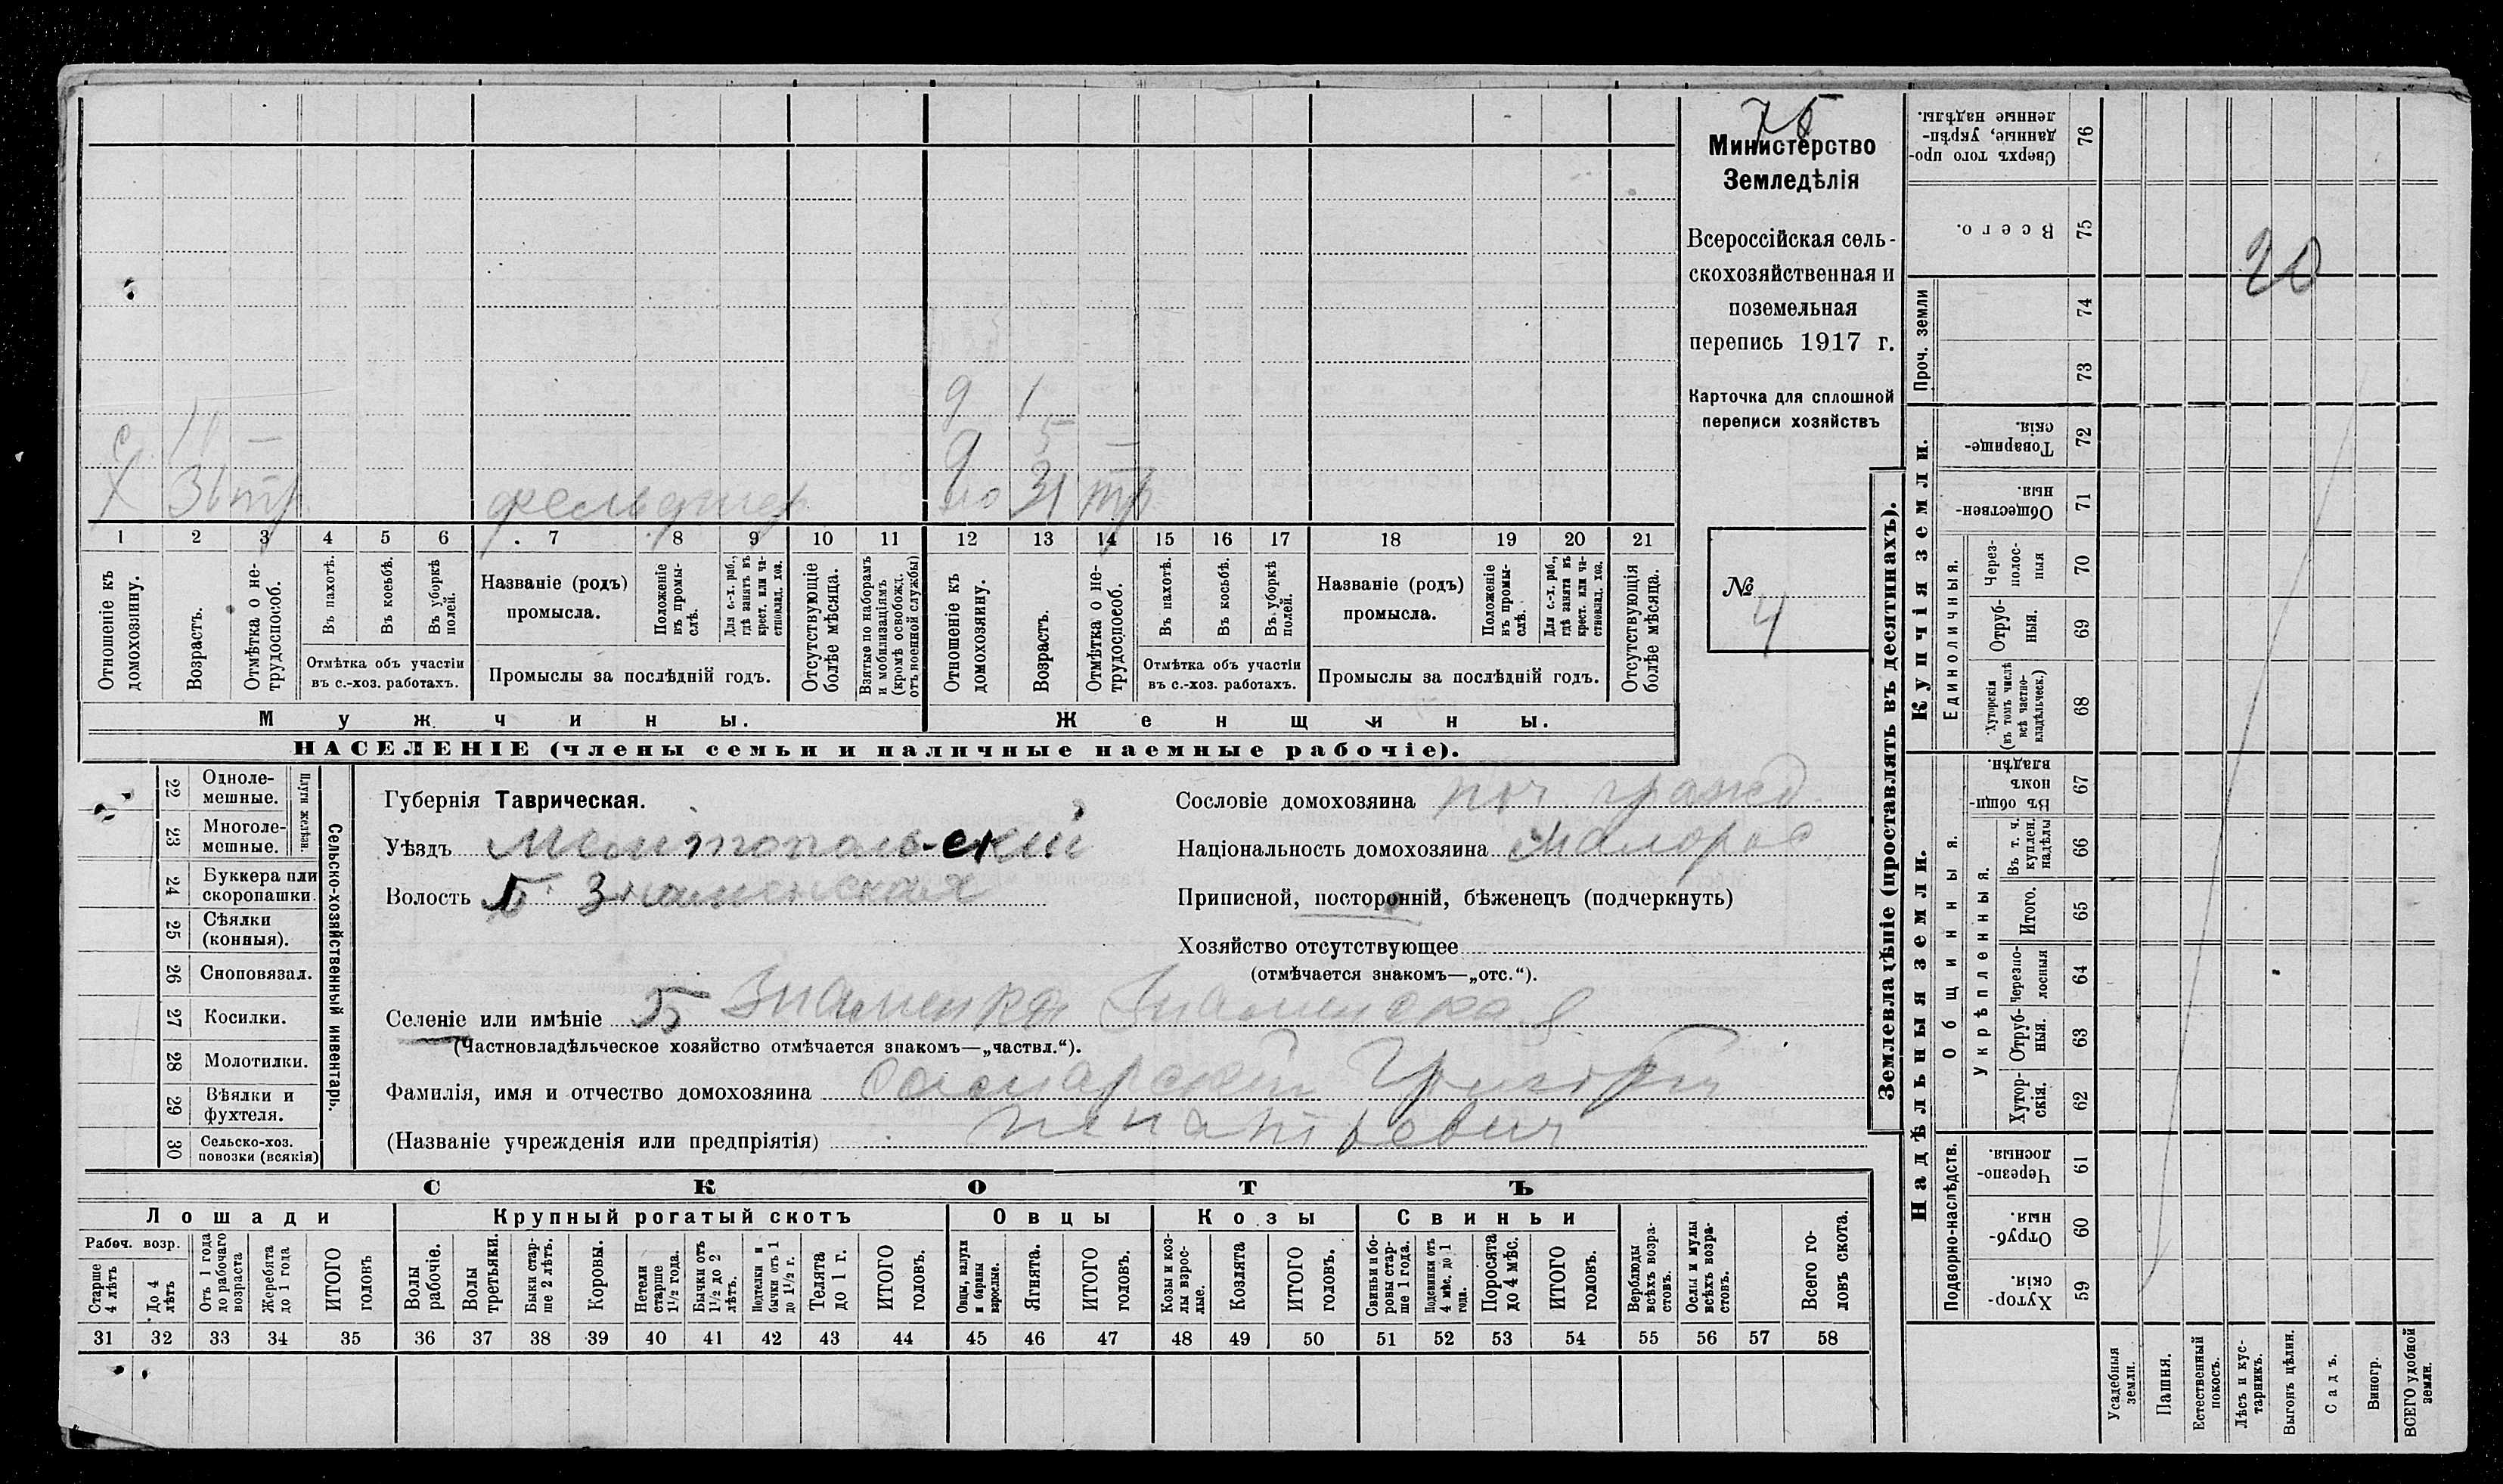 75
Министерство
Земледѣлія
Всероссійская сель-
скохозяйственная и
поземельная
перепись 1917 г.
Карточка для сплошной
переписи хозяйствъ
№
4
д 1
с 11 —
д 5 —
Х 36 тр. фельдшер
31 тр
1 2 3 4 5 6 7 8 9 10 11 12 13 14 15 16 17 18 19 20 21
Отношеніе къ домохозяину.
Возрастъ.
Отмѣтка о не-трудоспособ.
Въ пахотѣ.
Въ косьбѣ.
Въ уборкѣ полей.
Отмѣтка объ участіи
въ с.-хоз. работахъ.
Названіе (родъ)
промысла.
Положеніе въ промы-слѣ.
Для с.-х. раб., гдѣ занятъ въ крест. или ча-стновлад. хоз.
Промыслы за послѣдній годъ.
Отсутствующіе болѣе мѣсяца.
Взятые по наборамъ и мобилизаціямъ (кромѣ освобожд. отъ военной службы)
Отношеніе къ домохозяину.
Возрастъ.
Отмѣтка о не-трудоспособ.
Въ пахотѣ.
Въ косьбѣ.
Въ уборкѣ полей.
Отмѣтка объ участіи
въ с.-хоз. работахъ.
Названіе (родъ)
промысла.
Положеніе въ промы-слѣ.
Для с.-х. раб., гдѣ занята въ крест. или ча-стновлад. хоз.
Промыслы за послѣдній годъ.
Отсутствующія болѣе мѣсяца.
Мужчины.
Женщины.
НАСЕЛЕНІЕ (члены семьи и наличные наемные рабочіе).
Сельско-хозяйственный инвентарь.
Плуги желѣзн.
22 Одноле-мешные.
23 Многоле-мешные.
24 Буккера или скоропашки.
25 Сѣялки (конныя).
26 Сноповязал.
27 Косилки.
28 Молотилки.
29 Вѣялки и фухтеля.
30 Сельско-хоз. повозки (всякія)
Губернія Таврическая.
Уѣздъ Мелитопольский
Волость Б. Знаменская
Сословіе домохозяина поч гражд
Національность домохозяина Малорос
Приписной, посторонній, бѣженецъ (подчеркнуть)
Хозяйство отсутствующее
(отмѣчается знакомъ—„отс.“).
Селеніе или имѣніе Б Знаменка Знаменская
(Частновладѣльческое хозяйство отмѣчается знакомъ—„частвл.“).
Фамилія, имя и отчество домохозяина
(Названіе учрежденія или предпріятія)
СКОТЪ
Лошади
Рабоч. возр.
Старше 4 лѣтъ
До 4 лѣтъ
Отъ 1 года до рабочаго возраста
Жеребята до 1 года
ИТОГО головъ
Крупный рогатый скотъ
Волы рабочіе.
Волы третьяки.
Быки стар-ше 2 лѣтъ.
Коровы.
Нетели старше 1½ года.
Бычки отъ 1½ до 2 лѣтъ.
Подтелки и бычки отъ 1 до 1½ г.
Телята до 1 г.
ИТОГО головъ.
Овцы
Овцы, валухи и бараны взрослые.
Ягнята.
ИТОГО головъ.
Козы
Козы и коз-лы взрос-лые.
Козлята
ИТОГО головъ.
Свиньи
Свиньи и бо-ровы стар-ше 1 года.
Подсвинки отъ 4 мѣс. до 1 года.
Поросята до 4 мѣс.
ИТОГО головъ.
Верблюды всѣхъ возра-стовъ.
Ослы и мулы всѣхъ возра-стовъ.
Всего го-ловъ скота.
31 32 33 34 35 36 37 38 39 40 41 42 43 44 45 46 47 48 49 50 51 52 53 54 55 56 57 58
Землевладѣніе (проставлять въ десятинахъ).
Сверхъ того про-данные, укрѣп-ленные надѣлы. 76
Всего. 75
20
Проч. земли
74
73
Купчія земли.
Товарище-скія. 72
Обществен-ныя. 71
Единоличныя.
Через-полос-ныя 70
Отруб-ныя. 69
Хуторскія (въ томъ числѣ всѣ частно-владѣльческ.) 68
Надѣльныя земли.
Общинныя.
Въ общин-номъ владѣн. 67
Въ т. ч. куплен. надѣлы 66
Укрѣпленныя.
Итого. 65
Черезпо-лосныя 64
Отруб-ныя. 63
Хутор-скія. 62
Подворно-наслѣдств.
Черезпо-лосныя. 61
Отруб-ныя. 60
Хутор-скія. 59
Усадебныя земли.
Пашня.
Естественный покосъ.
Лѣсъ и кус-тарникъ.
Выгонъ цѣлин.
Садъ.
Виногр.
ВСЕГО удобной земли.